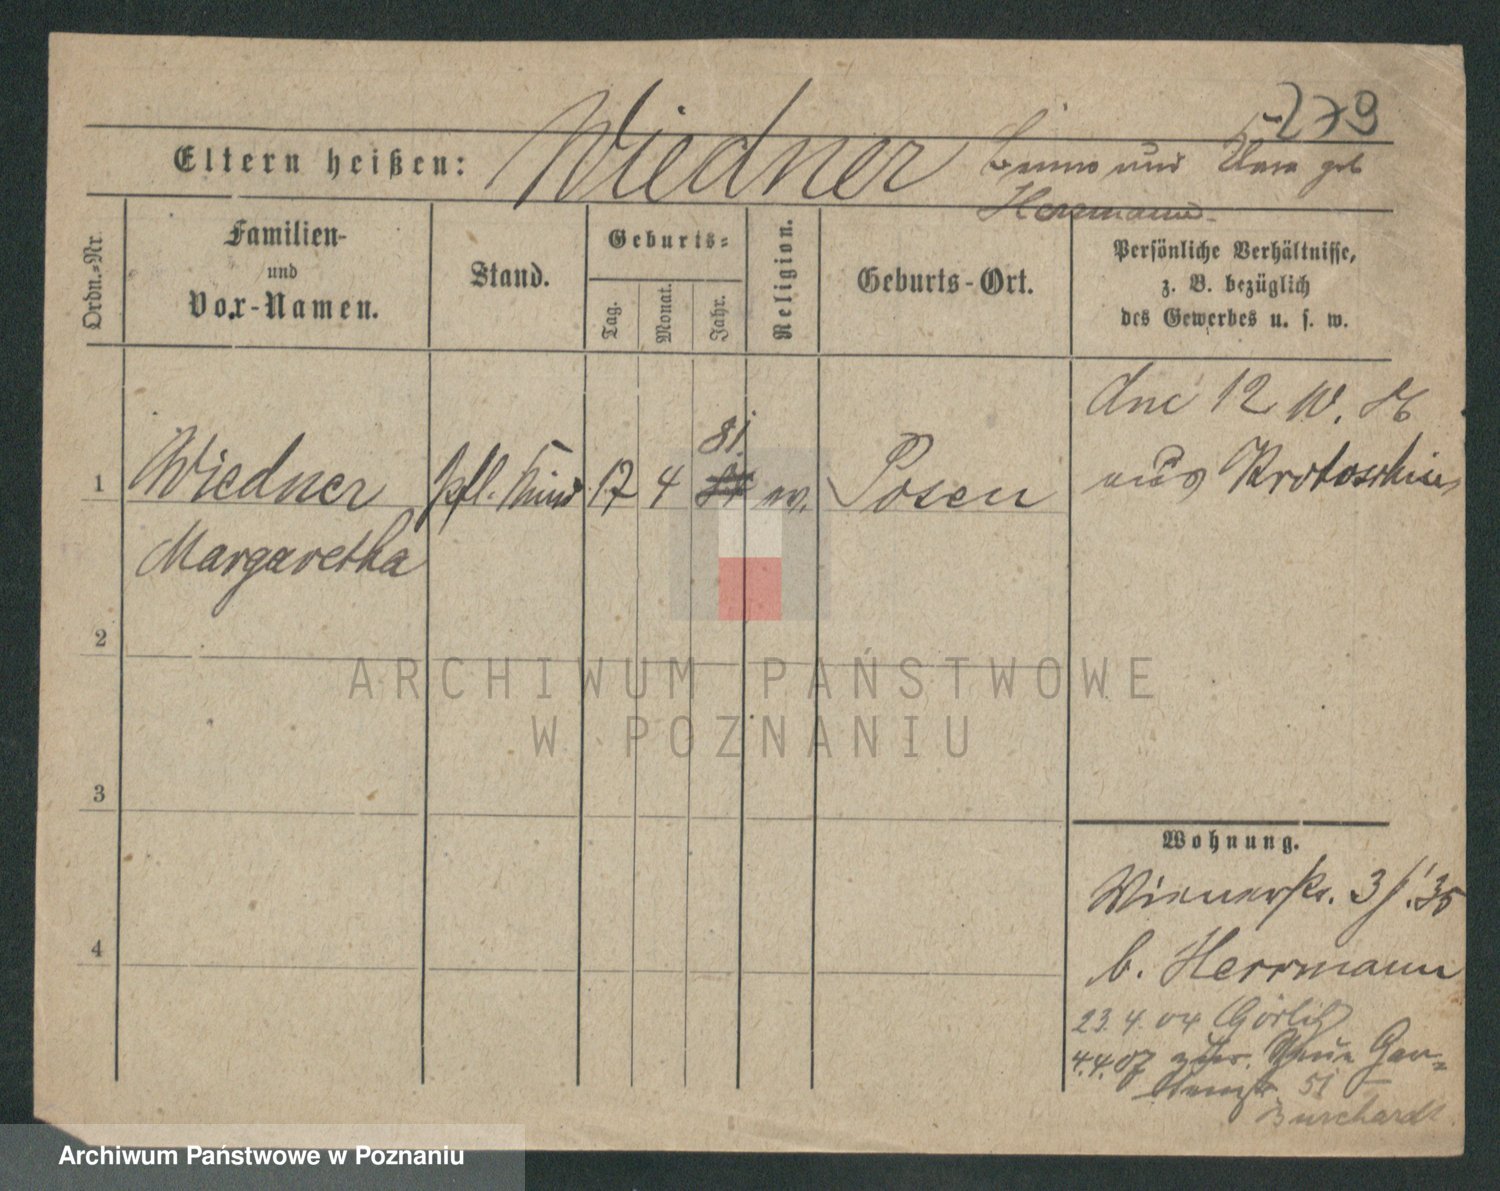 279
Eltern heißen: Wiedner Benno und Clara geb
Herrmann.
Ordn.-Nr.
Familien-
und
Vor-Namen.
Stand.
Geburts-
Tag.
Monat.
Jahr.
Religion.
Geburts-Ort.
Persönliche Verhältnisse,
z. B. bezüglich
des Gewerbes u. s. w.
81.
1 Wiedner pfl. Kind 17 4 ev. Posen
Margaretha
12 10. 86
aus Krotoschin
2
3
4
Wohnung.
Wienerstr. 3
b. Herrmann
23. 4. 04 Görlitz
4.4.07 zur. Neue Gar-
tenstr. 51
Burchardt
ARCHIWUM PAŃSTWOWE
W POZNANIU
Archiwum Państwowe w Poznaniu